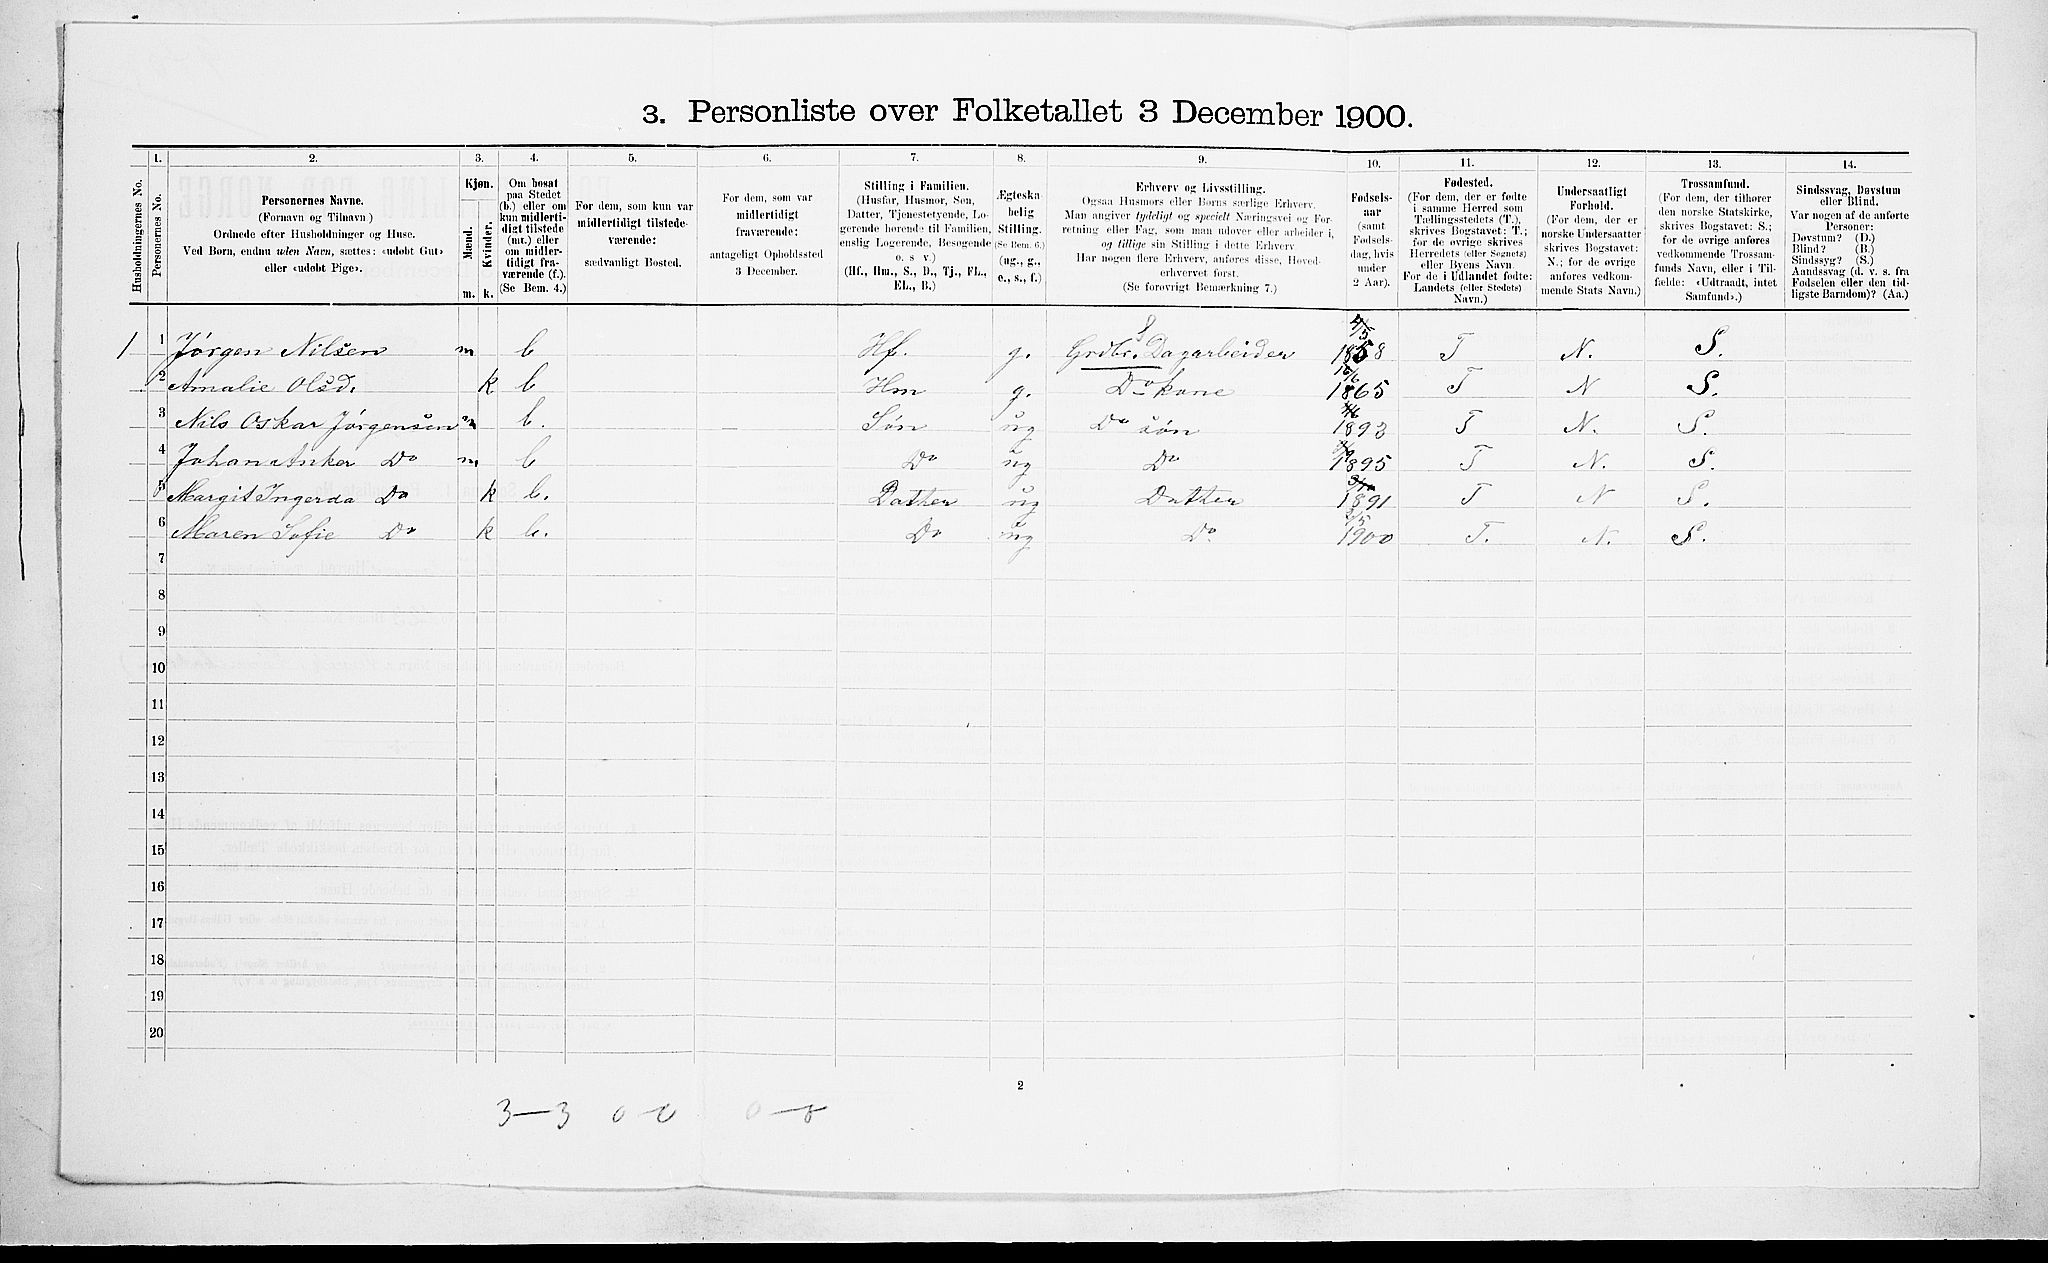 3. Personliste over Folketallet 3 December 1900.
1. 2. 3. 4. 5. 6. 7. 8. 9. 10. 11. 12. 13. 14.
Husholdningernes No.
Personernes No.
Personernes Navne.
(Fornavn og Tilnavn.)
Ordnede efter Husholdninger og Huse.
Ved Børn, endnu uden Navn, sættes: «udøbt Gut»
eller «udøbt Pige».
Kjøn.
Mænd.
Kvinder.
m. k.
Om bosat
paa Stedet
(b.) eller om
kun midlerti-
digt tilstede
(mt.) eller
om midler-
tidigt fra-
værende (f.).
(Se Bem. 4.)
For dem, som kun var
midlertidigt tilstede-
værende:
sædvanligt Bosted.
For dem, som var
midlertidigt
fraværende:
antageligt Opholdssted
3 December.
Stilling i Familien.
(Husfar, Husmor, Søn,
Datter, Tjenestetyende, Lo-
gerende hørende til Familien,
enslig Logerende, Besøgende
o. s. v.)
(Hf., Hm., S., D., Tj., FL.,
EL., B.)
Ægteska-
belig
Stilling.
(Se Bem. 6.)
(ug., g.,
e., s., f.)
Erhverv og Livsstilling.
Ogsaa Husmors eller Børns særlige Erhverv.
Man angiver tydeligt og specielt Næringsvei og For-
retning eller Fag, som man udøver eller arbeider i,
og tillige sin Stilling i dette Erhverv.
Har nogen flere Erhverv, anføres disse, Hoved-
erhvervet først.
(Se forøvrigt Bemærkning 7.)
Fødsels-
aar
(samt
Fødsels-
dag, hvis
under
2 Aar).
Fødested.
(For dem, der er fødte
i samme Herred som
Tællingsstedets (T.),
skrives Bogstavet: T.;
for de øvrige skrives
Herredets (eller Sognets)
eller Byens Navn.
For de i Udlandet fødte:
Landets (eller Stedets)
Navn.)
Undersaatligt
Forhold.
(For dem, der er
norske Undersaatter
skrives Bogstavet:
N.; for de øvrige
anføres vedkom-
mende Stats Navn.)
Trossamfund.
(For dem, der tilhører
den norske Statskirke,
skrives Bogstavet: S.;
for de øvrige anføres
vedkommende Trossam-
funds Navn, eller i Til-
fælde: «Udtraadt, intet
Samfund».)
Sindssvag, Døvstum
eller Blind.
Var nogen af de anførte
Personer:
Døvstum? (D.)
Blind? (B.)
Sindssyg? (S.)
Aandssvag (d. v. s. fra
Fødselen eller den tid-
ligste Barndom)? (Aa.)
1 1 Jørgen Nilsen m b Hf. g. Grdbr. Dagarbeider 4/5 1858 T N. S.
2 Amalie Olsd. k b Hm g. Do kone 1865 T N S.
3 Nils Oskar Jørgensen m b. Søn ug Do søn 1893 T N. S.
4 Johan Anker Do m b Do ug Do 1895 T N. S.
5 Margit Ingerda Do k b. Datter ug Datter 1891 T N S.
6 Maren Sofie Do k b. Do ug Do 2/5 1900 T. N. S.
7
8
9
10
11
12
13
14
15
16
17
18
19
20
2
3—3 0—0 0—0